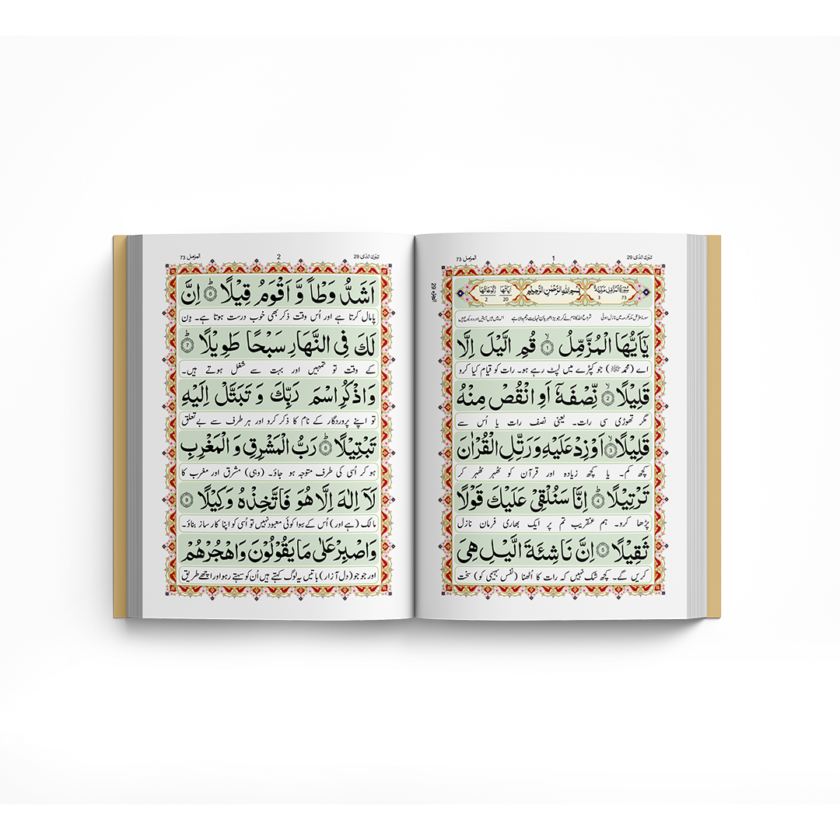 تبٰرک الذی 29
1
المزمل 73
73
3
بِسْمِ اللّٰهِ الرَّحْمٰنِ الرَّحِيْمِ
20
2
يٰۤاَيُّهَا الْمُزَّمِّلُ ۙ۱ قُمِ الَّيْلَ اِلَّا
اے (محمدﷺ) جو کپڑے میں لپٹ رہے ہو۔ رات کو قیام کیا کرو
قَلِيْلًا ۙ۲ نِّصْفَهٗۤ اَوِ انْقُصْ مِنْهُ
مگر تھوڑی سی رات۔ یعنی نصف رات یا اُس سے
قَلِيْلًا ۙ۳ اَوْ زِدْ عَلَيْهِ وَ رَتِّلِ الْقُرْاٰنَ
کچھ کم۔ یا کچھ زیادہ اور قرآن کو ٹھہر ٹھہر کر
تَرْتِيْلًا ؕ۴ اِنَّا سَنُلْقِيْ عَلَيْكَ قَوْلًا
پڑھا کرو۔ ہم عنقریب تم پر ایک بھاری فرمان نازل
ثَقِيْلًا ۵ اِنَّ نَاشِئَةَ الَّيْلِ هِيَ
کریں گے۔ کچھ شک نہیں کہ رات کا اُٹھنا (نفسِ بہیمی کو) سخت
تبٰرک الذی 29
2
المزمل 73
اَشَدُّ وَطْاً وَّ اَقْوَمُ قِيْلًا ؕ۶ اِنَّ
پامال کرتا ہے اور اُس وقت ذکر بھی خوب درست ہوتا ہے۔ دِن
لَكَ فِي النَّهَارِ سَبْحًا طَوِيْلًا ؕ۷
کے وقت تو تمہیں اور بہت سے شغل ہوتے ہیں۔
وَاذْكُرِ اسْمَ رَبِّكَ وَ تَبَتَّلْ اِلَيْهِ
تو اپنے پروردگار کے نام کا ذکر کرو اور ہر طرف سے بے تعلق
تَبْتِيْلًا ؕ۸ رَبُّ الْمَشْرِقِ وَ الْمَغْرِبِ
ہو کر اُسی کی طرف متوجہ ہو جاؤ۔ (وہی) مشرق اور مغرب کا
لَاۤ اِلٰهَ اِلَّا هُوَ فَاتَّخِذْهُ وَكِيْلًا ۹
مالک (ہے اور) اُس کے سوا کوئی معبود نہیں تو اُسی کو اپنا کارساز بناؤ۔
وَاصْبِرْ عَلٰى مَا يَقُوْلُوْنَ وَاهْجُرْهُمْ
اور جو جو (دل آزار) باتیں یہ لوگ کہتے ہیں اُن کو سہتے رہو اور اچھے طریق